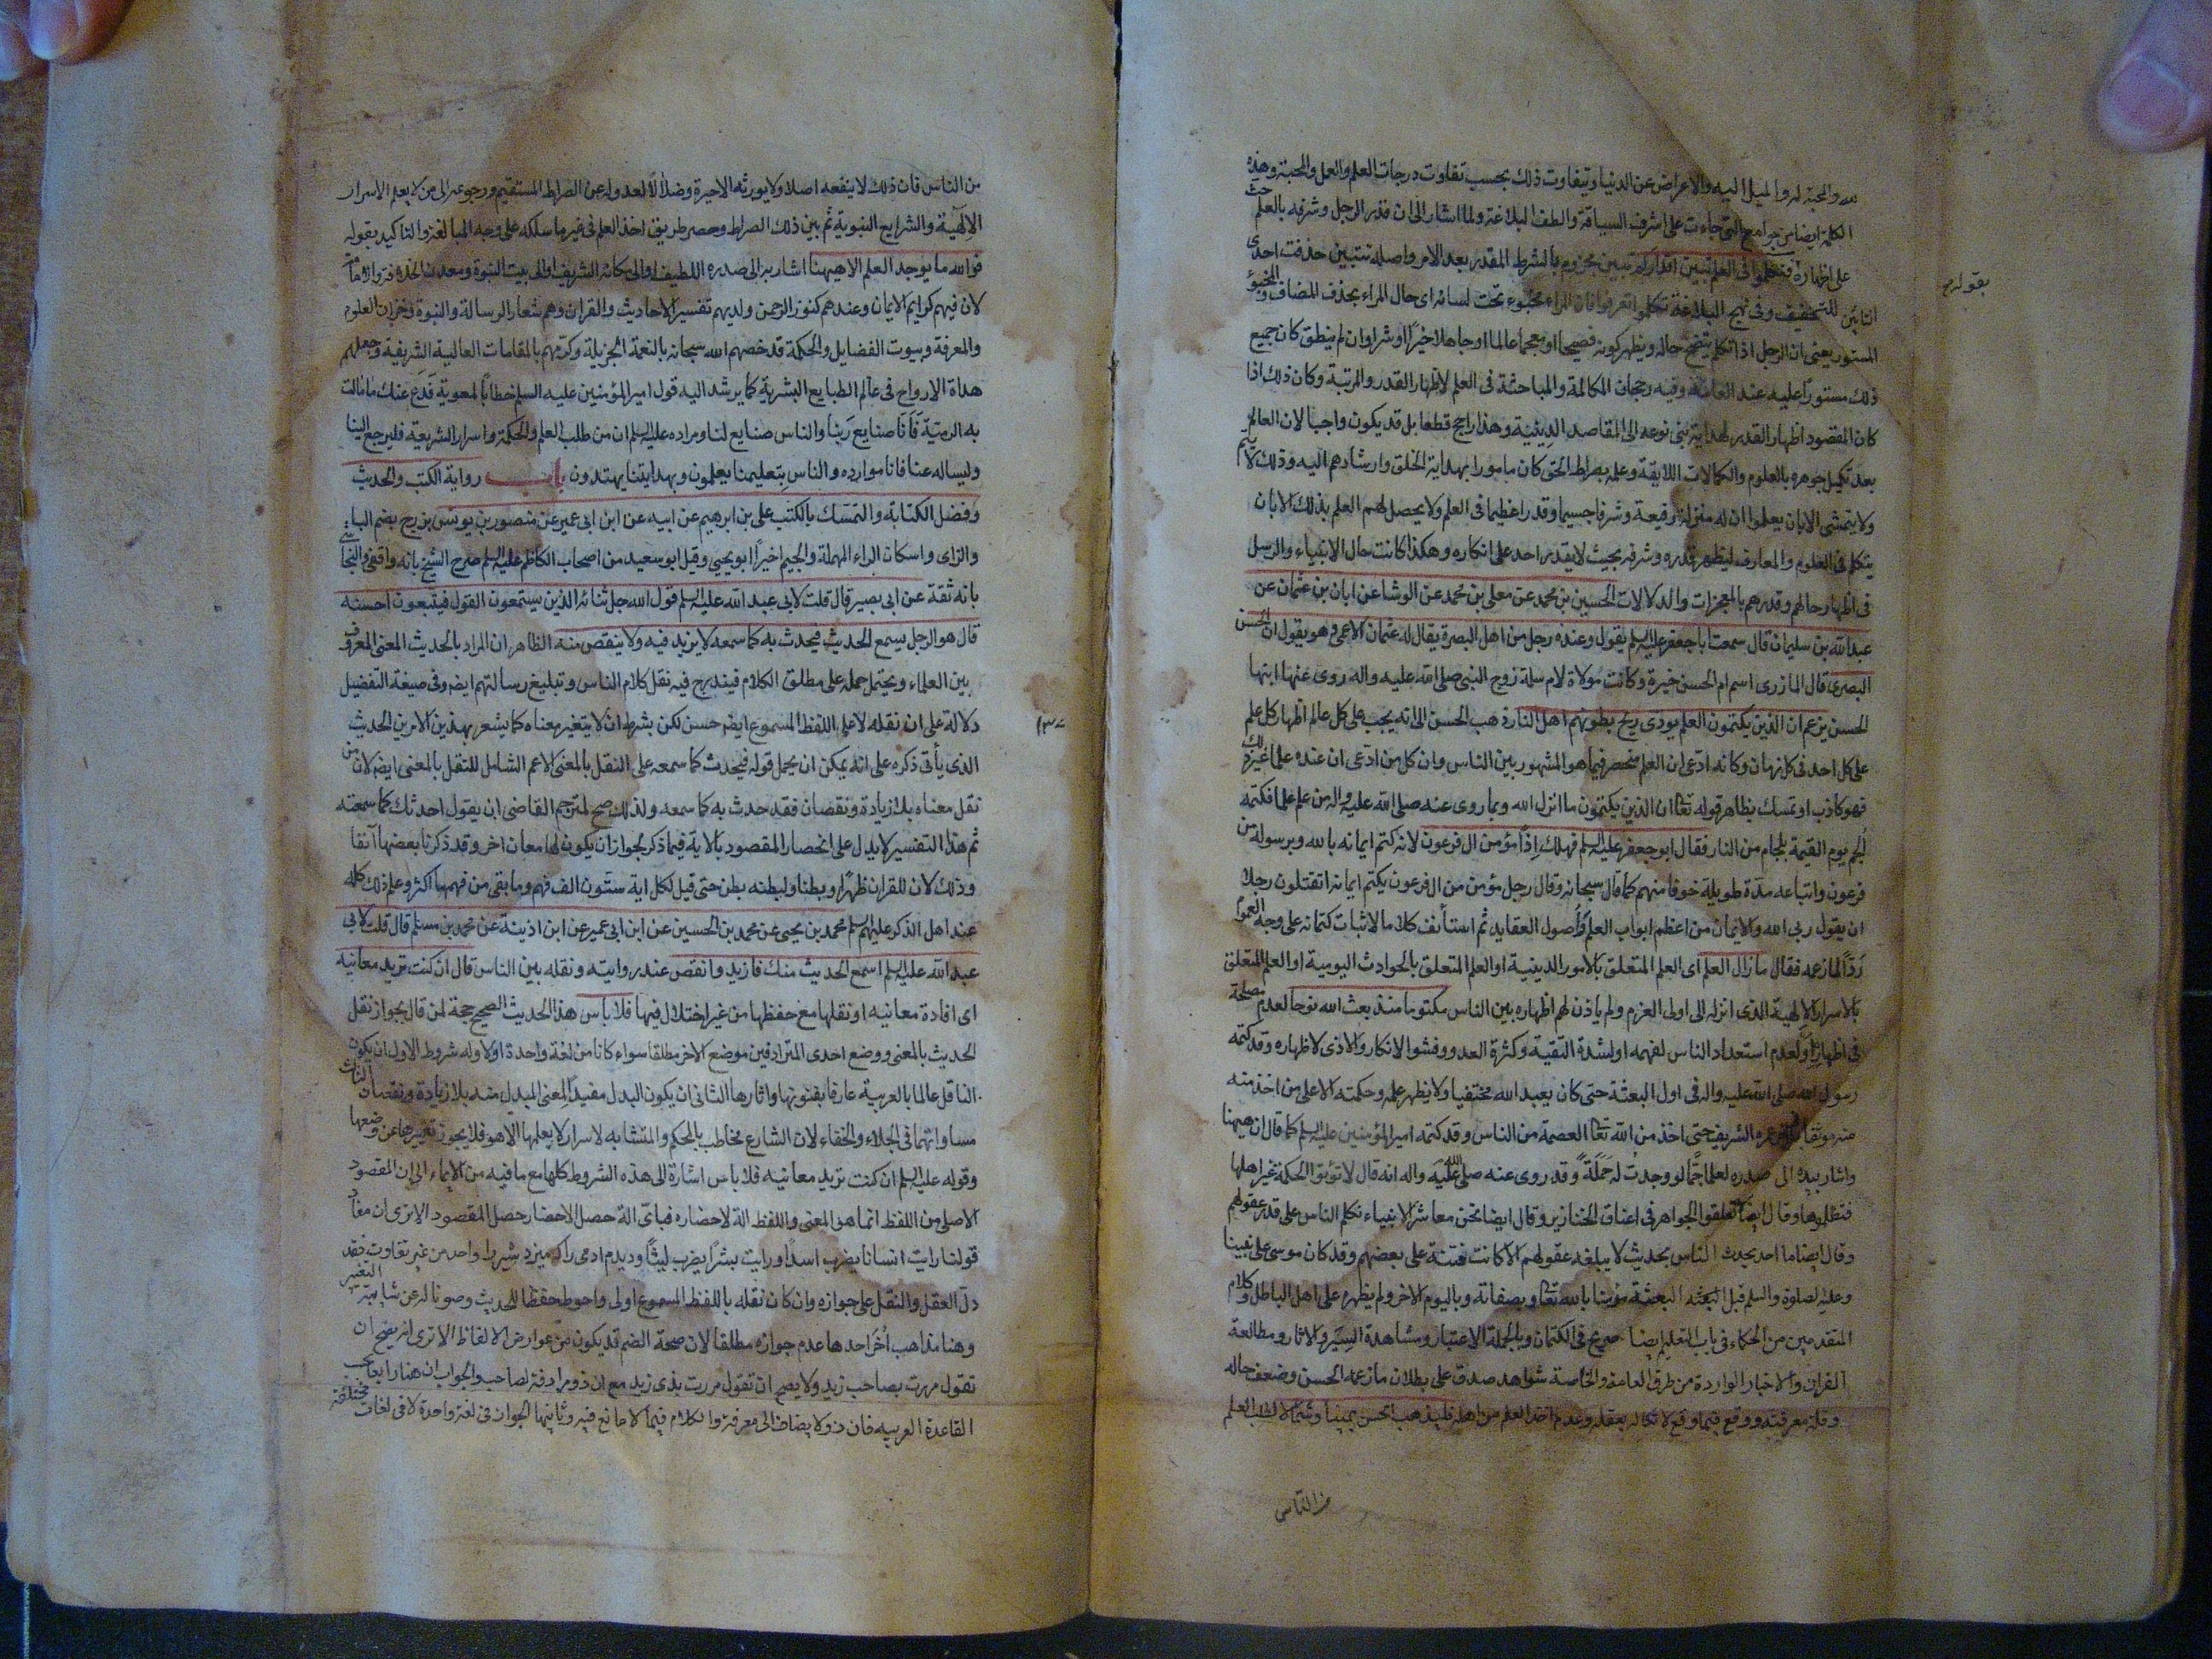 لله والمحبة له والميل اليه والاعراض عن الدنيا وتيفاوت ذلك بحسب تفاوت درجات العلم والعمل والمحبة وهذه
الكلمة ايضا من جوامع التى جاءت على اشرف السياقة والطف البلاغة ولما اشار الى ان قدر الرجل وشرفه بالعلم حث
على اظهاره فتكلموا فى العلم تبين اقداركم تبين مجزوم بالشرط المقدر بعد الامر واصله تتبين حذفت احدى
التائين للتخفيف وفى نهج البلاغة تكلموا تعرفوا فان المراء مخبوء تحت لسانه اى حال المراء بحذف المضاف والمخبوء
بقوله
المستور يعنى ان الرجل اذا تكلم يتضح حاله ويظهر كونه فصيحا او معجما عالما او جاهلا خيرا او شرا وان لم ينطق كان جميع
ذلك مستورا عليه عند العامة وفيه رجحان المكالمة والمباحثة فى العلم لاظهار القدر والمرتبة وكان ذلك اذا
كان المقصود اظهار القدر لهداية بنى نوعه الى المقاصد الدينية وهذا راجح قطعا بل قد يكون واجبا لان العالم
بعد تكميل جوهره بالعلوم والكمالات اللايقة وعلمه بصراط الحق كان مامورا بهداية الخلق وارشادهم اليه وذلك لا يتم
ولا يتمشى الا بان يعلموا ان له منزلة رفيعة وشرفا جسيما وقدرا عظيما فى العلم ولا يحصل لهم العلم بذلك الا بان
يتكلم فى العلوم والمعارف ليظهر قدره وشرفه بحيث لا يقدر احد على انكاره وهكذا كانت حال الانبياء والرسل
فى اظهار حالهم وقدرهم بالمعجزات والدلالات الحسين بن محمد عن معلى بن محمد عن الوشا عن ابان بن عثمان عن
عبد الله بن سليمان قال سمعت ابا جعفر عليه السلم يقول وعنده رجل من اهل البصرة يقال له عثمان الاعمى وهو يقول ان الحسن
البصرى قال المازرى اسم ام الحسن خيرة وكانت مولاة لام سلمة زوج النبى صلى الله عليه واله روى عنها ابنها
الحسن يزعم ان الذين يكتمون العلم يوذى ريح بطونهم اهل النار ذهب الحسن الى انه يجب على كل عالم اظهار كل علم
على كل احد فى كل زمان وكانه ادعى ان العلم منحصر فيما هو المشهور بين الناس وان كل من ادعى ان عنده علما غير ذلك
فهو كاذب او تمسك بظاهر قوله تعا ان الذين يكتمون ما انزل الله وبما روى عنه صلى الله عليه واله من علم علما فكتمه
الجم يوم القيمة بلجام من النار فقال ابو جعفر عليه السلم فهلك اذًا مؤمن ال فرعون لانه كتم ايمانه بالله وبرسوله من
فرعون واتباعه مدة طويلة خوفا منهم كما قال سبحانه وقال رجل مؤمن من ال فرعون يكتم ايمانه اتقتلون رجلا
ان يقول ربى الله والايمان من اعظم ابواب العلم واصول العقايد ثم استأنف كلاما لاثبات كتمانه على وجه العموم
ردًا لما زعمه فقال ما زال العلم اى العلم المتعلق بالامور الدينية او العلم المتعلق بالحوادث اليومية او العلم المتعلق
بالاسرار الالهية الذى انزله الى اولى العزم ولم ياذن لهم اظهاره بين الناس مكتوما منذ بعث الله نوحا لعدم مصلحة
فى اظهاره او لعدم استعداد الناس لفهمه او لشدة التقية وكثرة العدو وفشو الانكار والاذى لاظهاره وقد كتمه
رسول الله صلى الله عليه واله فى اول البعثة حتى كان يعبد الله مختفيا ولا يظهر علمه وحكمته الا على من اخذ منه
الشريف حتى اخذ من الله تعا العصمة من الناس وقد كتمه امير المؤمنين عليه السلم كما قال ان هيهنا
واشار بيده الى صدره لعلما جمًا لو وجدت له حملة وقد روى عنه صلى الله عليه واله انه قال لا تؤتوا الحكمة غير اهلها
فتظلموها وقال ايضا لا تعلقوا الجواهر فى اعناق الخنازير وقال ايضا نحن معاشر الانبياء نكلم الناس على قدر عقولهم
وقال ايضا ما احد يحدث الناس بحديث لا يبلغه عقولهم الا كانت فتنة على بعضهم وقد كان موسى على نبينا
وعليه الصلوة والسلم قبل البعثة مؤمنا بالله تعا وبصفاته وباليوم الاخر ولم يظهر على اهل الباطل وكلام
المتقدمين من الحكماء فى باب التعليم ايضا صريح فى الكتمان وبالجملة الاعتبار ومشاهدة السير والاثار ومطالعة
القران والاخبار الواردة من طرق العامة والخاصة شواهد صدق على بطلان ما زعمه الحسن وضعف حاله
وقلة معرفته ووقع فيما وقع لاتكاله بعقله وعدم اخذ العلم من اهله فليذهب الحسن يمينا وشمالا لطلب العلم
من الناس
من الناس فان ذلك لا ينفعه اصلا ولا يورثه الا حيرة وضلالًا لعدوله عن الصراط المستقيم ورجوعه الى من لا يعلم الاسرار
الالهية والشرايع النبوية ثم بين ذلك الصراط وحصر طريق اخذ العلم فى غير ما سلكه على وجه المبالغة والتاكيد بقوله
فوالله ما يوجد العلم الا هيهنا اشار به الى صدره اللطيف او الى مكانه الشريف او الى بيت النبوة ومعدن الخلافة والامامة
لان فيهم كرايم الايمان وعندهم كنوز الرحمن ولديهم تفسير الاحاديث والقران وهم شعار الرسالة والنبوة وخزان العلوم
والمعرفة وبيوت الفضايل والحكمة قد خصهم الله سبحانه بالنعمة الجزيلة وكرمهم بالمقامات العالية الشريفة وجعلهم
هداة الارواح فى عالم الطبايع البشرية كما يرشد اليه قول امير المؤمنين عليه السلم خطابًا لمعوية فدع عنك ما مالت
به الرمية فانا صنايع ربنا والناس صنايع لنا ومراده عليه السلم ان من طلب العلم والحكمة واسرار الشريعة فليرجع الينا
وليساله عنا فانا موارده والناس بتعليمنا يعلمون وبهدايتنا يهتدون باب رواية الكتب والحديث
وفضل الكتابة والتمسك بالكتب على بن ابرهيم عن ابيه عن ابن ابى عمير عن منصور بن يونس بن زج بضم الباء
والزاى واسكان الراء المهملة والجيم اخيرًا ابو يحيى وقيل ابو سعيد من اصحاب الكاظم عليه السلم صرح الشيخ بانه واقفى والنجاشى
بانه ثقة عن ابى بصير قال قلت لابى عبد الله عليه السلم قول الله جل ثنائه الذين يستمعون القول فيتبعون احسنه
قال هو الرجل يسمع الحديث فيحدث به كما سمعه لا يزيد فيه ولا ينقص منه الظاهر ان المراد بالحديث المعنى المعروف
بين العلماء ويحتمل حمله على مطلق الكلام فيندرج فيه نقل كلام الناس وتبليغ رسالتهم ايضا وفى صيغة التفضيل
دلالة على ان نقله لا على اللفظ المسموع ايضا حسن لكن بشرط ان لا يتغير معناه كما يشعر بهذين الامرين الحديث
الذى يأتى ذكره على انه يمكن ان يحمل قوله فيحدث كما سمعه على النقل بالمعنى الاعم الشامل للنقل بالمعنى ايضا لان من
نقل معناه بلا زيادة ونقصان فقد حدث به كما سمعه ولذلك صح لمترجم القاضى ان يقول احدثك كما سمعته
ثم هذا التفسير لا يدل على انحصار المقصود بالاية فيما ذكر لجواز ان يكون لها معان اخر وقد ذكرنا بعضها آنفا
وذلك لان للقران ظهرًا وبطنا ولبطنه بطن حتى قيل لكل اية ستون الف فهم وما بقى من فهمها اكثر وعلم ذلك كله
عند اهل الذكر عليهم السلم محمد بن يحيى عن محمد بن الحسين عن ابن ابى عمير عن ابن اذينة عن محمد بن مسلم قال قلت لابى
عبد الله عليه السلم اسمع الحديث منك فازيد وانقص عند روايته ونقله بين الناس قال ان كنت تريد معانيه
اى افادة معانيه او نقلها مع حفظها من غير اختلال فيها فلا باس هذا الحديث الصحيح حجة لمن قال بجواز نقل
الحديث بالمعنى ووضع احدى المترادفين موضع الاخر مطلقا سواء كانا من لغة واحدة او لا وله شروط الاول ان يكون
الناقل عالما بالعربية عارفا بفنونها واثارها الثانى ان يكون البدل مفيدًا لمعنى المبدل منه بلا زيادة ونقصان الثالث
مساواتهما فى الجلاء والخفاء لان الشارع مخاطب بالمحكم والمتشابه لاسرار لا يعلمها الا هو فلا يجوز تغييرها عن وضعها
وقوله عليه السلم ان كنت تريد معانيه فلا باس اشارة الى هذه الشروط كلها مع ما فيه من الايماء الى ان المقصود
الاصلى من اللفظ انما هو المعنى واللفظ الة لاحضاره فباى الة حصل الاحضار حصل المقصود الا ترى ان مفاد
قولنا رايت انسانا يضرب اسدًا ورايت بشرًا يضرب ليثًا وديدم ادمى را كه ميزد شير را واحد من غير تفاوت فقد
دل العقل والنقل على جوازه وان كان نقله باللفظ المسموع اولى واحوط حفظا للحديث وصونا له عن شايبة التغير
وهنا مذاهب اخر احدها عدم جوازه مطلقا لان صحة الضم قد يكون من عوارض الالفاظ الا ترى انه يصح ان
تقول مررت بصاحب زيد ولا يصح ان تقول مررت بذى زيد مع ان ذو مرادفة لصاحب والجواب ان هنا رابعا حسب
القاعدة العربية فان ذو لا يضاف الى معرفة والكلام فيما لا مانع فيه وثانيها الجواز فى لغة واحدة لا فى لغات مختلفة